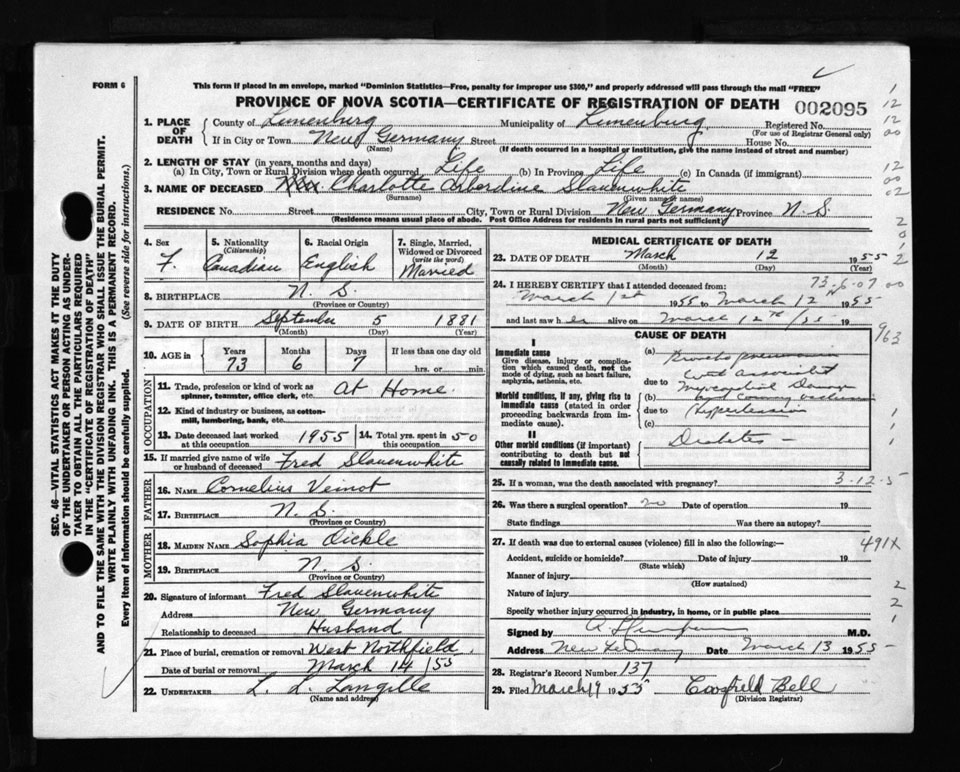 FORM 6
This form if placed in an envelope, marked "Dominion Statistics—Free, penalty for improper use $300," and properly addressed will pass through the mail "FREE"
PROVINCE OF NOVA SCOTIA—CERTIFICATE OF REGISTRATION OF DEATH 002095
1. PLACE OF DEATH
County of Lunenberg Municipality of Lunenburg Registered No.
(For use of Registrar General only)
If in City or Town New Germany Street House No.
(Name) (If death occurred in a hospital or institution, give the name instead of street and number)
2. LENGTH OF STAY (in years, months and days)
(a) In City, Town or Rural Division where death occurred Life (b) In Province Life (c) In Canada (if immigrant)
3. NAME OF DECEASED Mrs. Charlotte Slauenwhite
(Surname) (Given name or names)
RESIDENCE No. Street City, Town or Rural Division New Germany Province N. S.
(Residence means usual place of abode. Post Office Address for residents in rural parts not sufficient)
4. Sex F.
5. Nationality (Citizenship) Canadian
6. Racial Origin English
7. Single, Married, Widowed or Divorced (write the word) Married
8. BIRTHPLACE N. S.
(Province or Country)
9. DATE OF BIRTH September 5 1881
(Month) (Day) (Year)
10. AGE in Years Months Days If less than one day old
73 6 7 hrs. or min.
OCCUPATION
11. Trade, profession or kind of work as spinner, teamster, office clerk, etc. At Home
12. Kind of industry or business, as cotton-mill, lumbering, bank, etc.
13. Date deceased last worked at this occupation 1955 14. Total yrs. spent in this occupation 50
15. If married give name of wife or husband of deceased Fred Slauenwhite
FATHER
16. NAME Cornelius Veinot
17. BIRTHPLACE N. S.
(Province or Country)
MOTHER
18. MAIDEN NAME Sophia
19. BIRTHPLACE N. S.
(Province or Country)
20. Signature of informant Fred Slauenwhite
Address New Germany
Relationship to deceased Husband
21. Place of burial, cremation or removal West Northfield
Date of burial or removal March 14/55
22. UNDERTAKER L. L. Langille
(Name and address)
MEDICAL CERTIFICATE OF DEATH
23. DATE OF DEATH March 12 1955
(Month) (Day) (Year)
73-6-07
24. I HEREBY CERTIFY that I attended deceased from:
March 1st 1955 to March 12 1955
and last saw her alive on March 12th/55 19
CAUSE OF DEATH
I
Immediate cause
Give disease, injury or complication which caused death, not the mode of dying, such as heart failure, asphyxia, asthenia, etc.
Morbid conditions, if any, giving rise to immediate cause (stated in order proceeding backwards from immediate cause).
II
Other morbid conditions (if important) contributing to death but not causally related to immediate cause.
(a) Broncho pneumonia
with associated
due to Myocardial Damage
(b) and Coronary
due to Hypertension
(c)
Diabetes —
25. If a woman, was the death associated with pregnancy? 3-12-5
26. Was there a surgical operation? no Date of operation 19
State findings Was there an autopsy?
27. If death was due to external causes (violence) fill in also the following:— 491X
Accident, suicide or homicide? Date of injury 19
(State which)
Manner of injury
(How sustained)
Nature of injury
Specify whether injury occurred in industry, in home, or in public place
Signed by M.D.
Address New Germany Date March 13 1955
28. Registrar's Record Number 137
29. Filed March 19 1955 Bell
(Division Registrar)
SEC. 46—VITAL STATISTICS ACT MAKES IT THE DUTY OF THE UNDERTAKER OR PERSON ACTING AS UNDERTAKER TO OBTAIN ALL THE PARTICULARS REQUIRED IN THE "CERTIFICATE OF REGISTRATION OF DEATH" AND TO FILE THE SAME WITH THE DIVISION REGISTRAR WHO SHALL ISSUE THE BURIAL PERMIT.
WRITE PLAINLY WITH UNFADING INK. THIS IS A PERMANENT RECORD.
Every item of information should be carefully supplied. (See reverse side for instructions.)
1
12
12
00
12
00
02
2
0
1
2
00
963
2
2
1